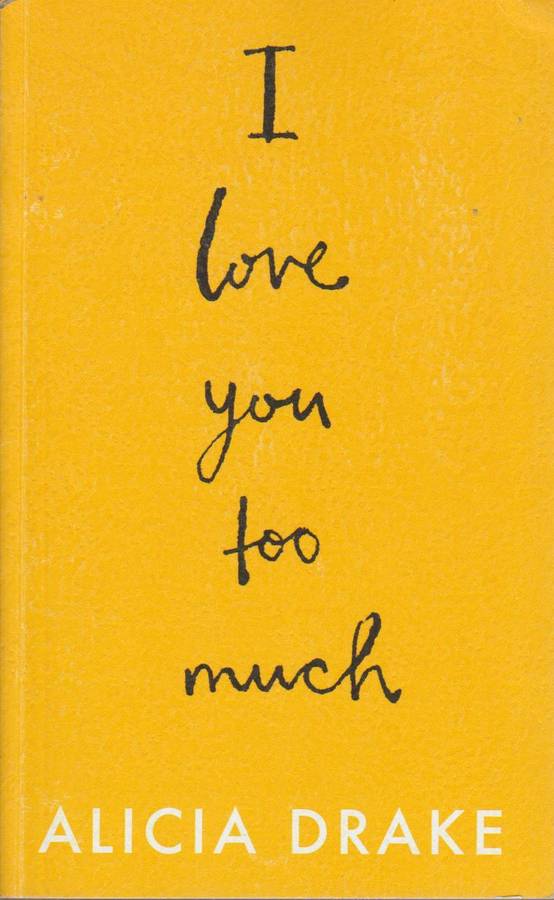 I
love
you
too
much
ALICIA DRAKE